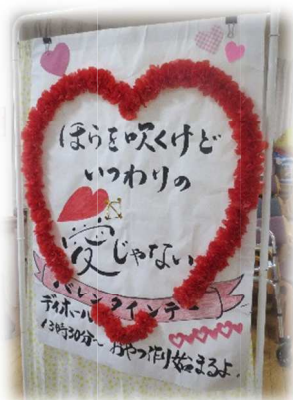 ほらを吹くけど
いつわりの
愛じゃない
バレンタインデー
デイホール
13時30分〜 おやつ作り始まるよ.